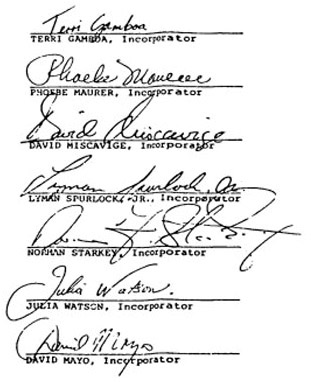 Terri Gamboa
TERRI GAMBOA, Incorporator
Phoebe Maurer
PHOEBE MAURER, Incorporator
David Miscavige
DAVID MISCAVIGE, Incorporator
Lyman Spurlock, Jr.
LYMAN SPURLOCK, JR., Incorporator
Norman F. Starkey
NORMAN STARKEY, Incorporator
Julia Watson.
JULIA WATSON, Incorporator
David Mayo
DAVID MAYO, Incorporator